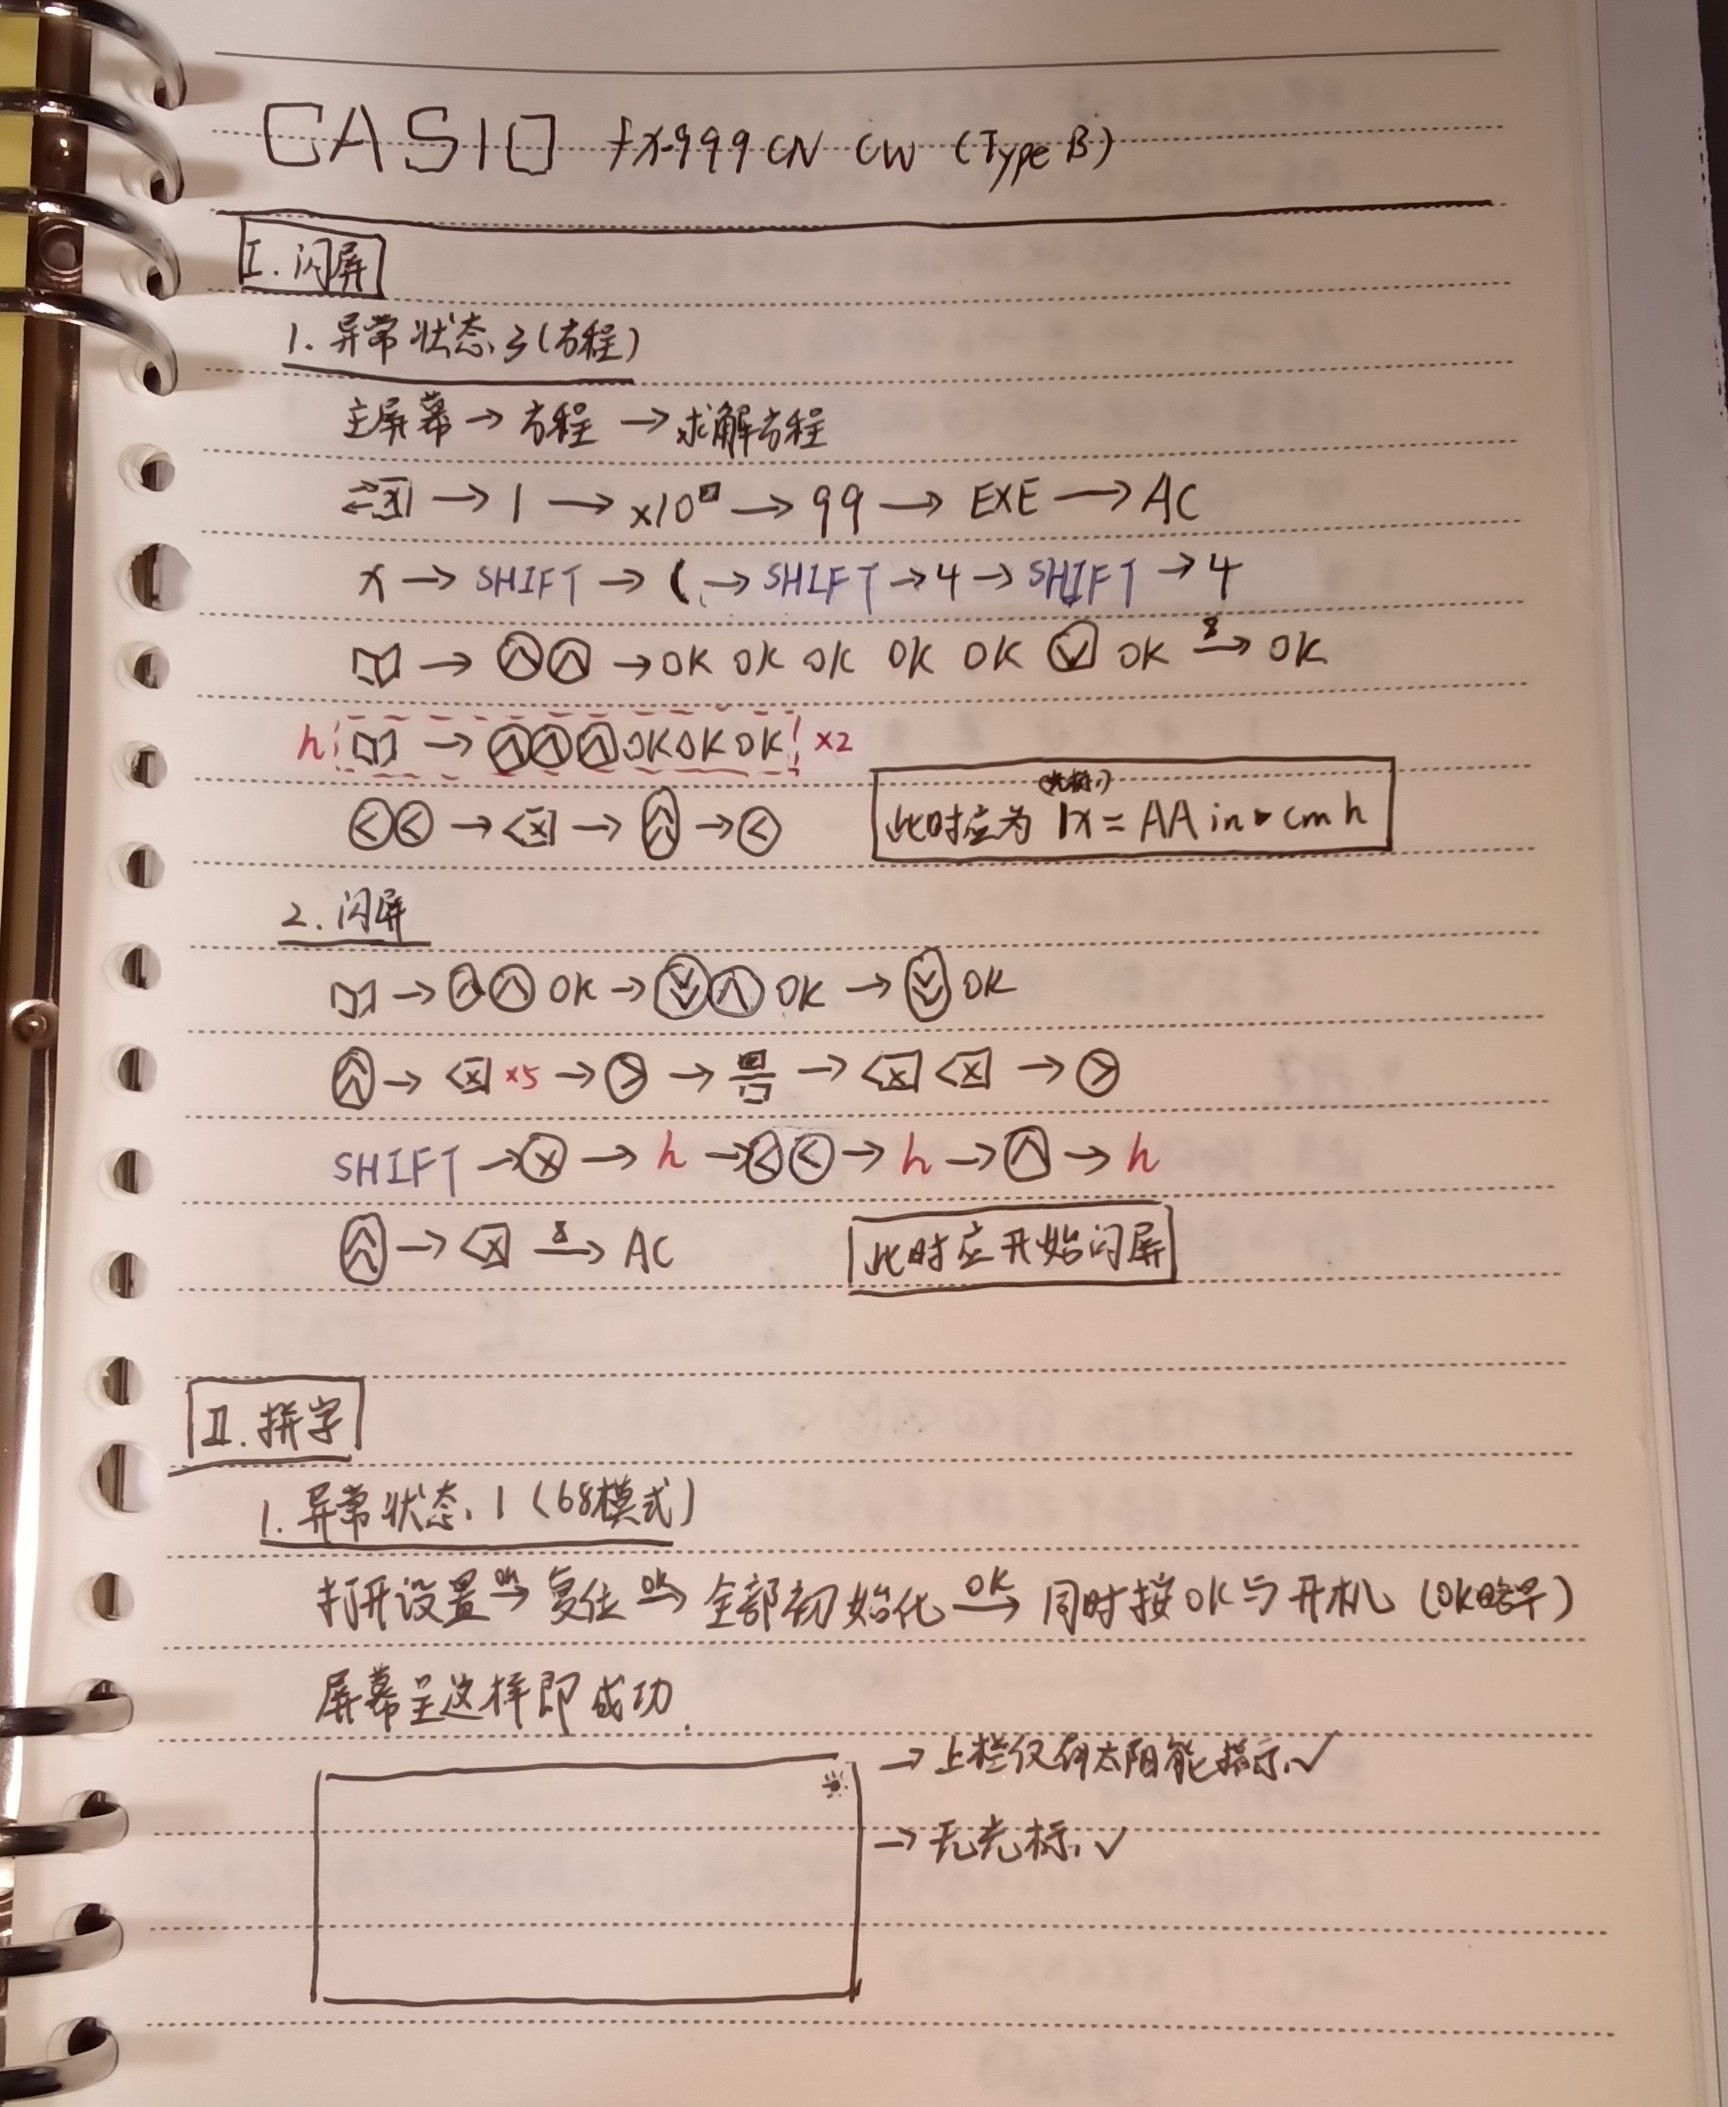 CASIO fx-999CN CW (Type B)
I. 闪屏
1. 异常状态3(方程)
主屏幕→方程→求解方程
→1→×10□→99→EXE→AC
x→SHIFT→(→SHIFT→4→SHIFT→4
→∧∧→OK OK OK OK OK ∨ OK →OK
h →∧∧∧OKOKOK ×2
<<→⌫→︽→<
此时应为(光标)|x=AAin▸cmh
2. 闪屏
→∧∧OK→︾∧OK→︾OK
︽→⌫×5→>→ →⌫⌫→>
SHIFT→×→h→<<→h→∧→h
︽→⌫→AC
此时应开始闪屏
II. 拼字
1. 异常状态1(68模式)
打开设置 OK→ 复位 OK→ 全部初始化 OK→ 同时按OK与开机(OK略早)
屏幕呈这样即成功.
→上栏仅剩太阳能指示✓
→无光标✓